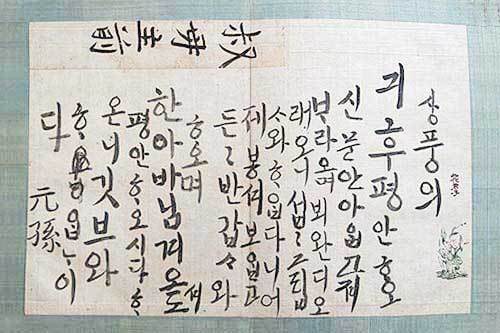 叔母主前
상풍의
긔후 평안ᄒᆞ오
신 문안 아ᄋᆞᆸ고져
ᄇᆞ라오며 뵈완디 오
래오니 섭〃 그립
ᄉᆞ와 ᄒᆞᄋᆞᆸ다니 어
제 봉셔 보ᄋᆞᆸ고
든〃 반갑ᄉᆞ와
ᄒᆞ오며
한아바님겨오셔도
평안ᄒᆞ오시다 ᄒᆞ
온니 깃브와
ᄒᆞᄋᆞᆸᄂᆞ이
다 元孫